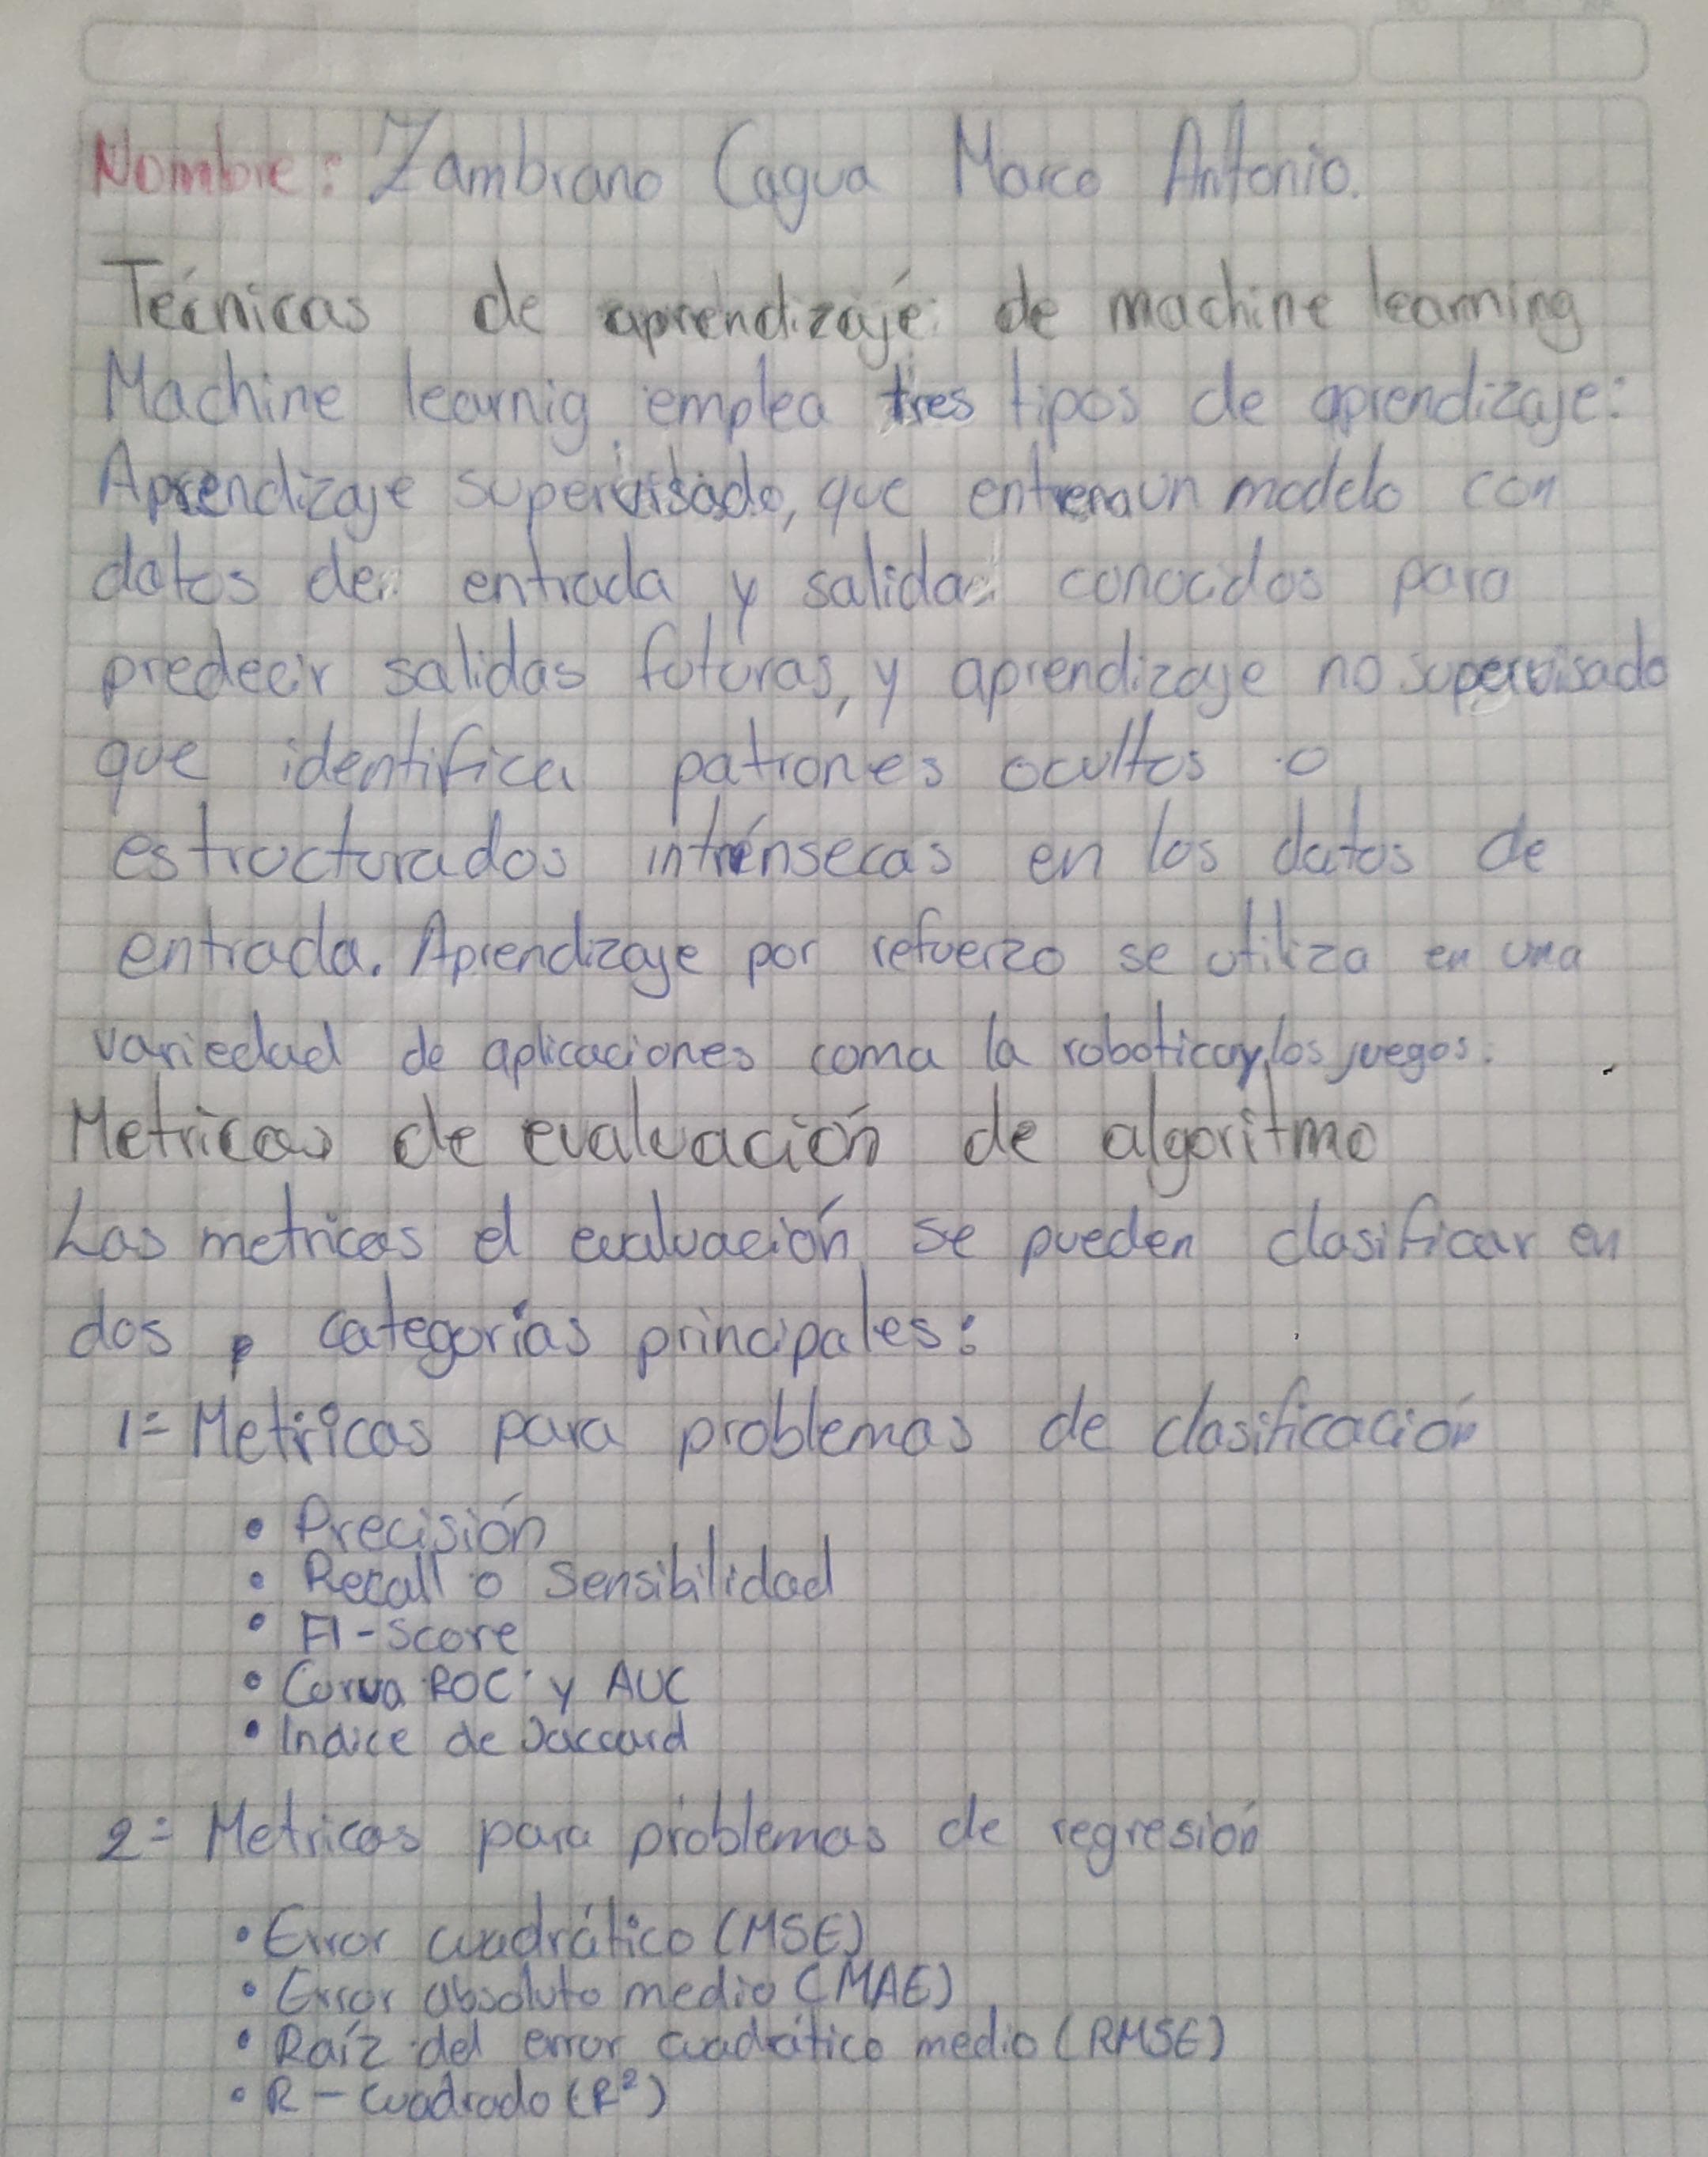 Nombre: Zambrano Cagua Marco Antonio.
Técnicas de aprendizaje de machine learning
Machine learnig emplea tres tipos de aprendizaje:
Aprendizaje supervisado, que entrena un modelo con
datos de entrada y salida conocidos para
predecir salidas futuras, y aprendizaje no supervisado
que identifica patrones ocultos o
estructurados intrínsecas en los datos de
entrada. Aprendizaje por refuerzo se utiliza en una
variedad de aplicaciones coma la robotica y los juegos.
Metricas de evaluación de algoritmo
Las metricas d evaluación se pueden clasificar en
dos categorías principales:
1= Metricas para problemas de clasificación
• Precisión
• Recall o Sensibilidad
• F1-Score
• Curva ROC y AUC
• Indice de Jaccard
2= Metricas para problemas de regresión
• Error cuadrático (MSE)
• Error absoluto medio (MAE)
• Raíz del error cuadrático medio (RMSE)
• R-Cuadrado (R²)